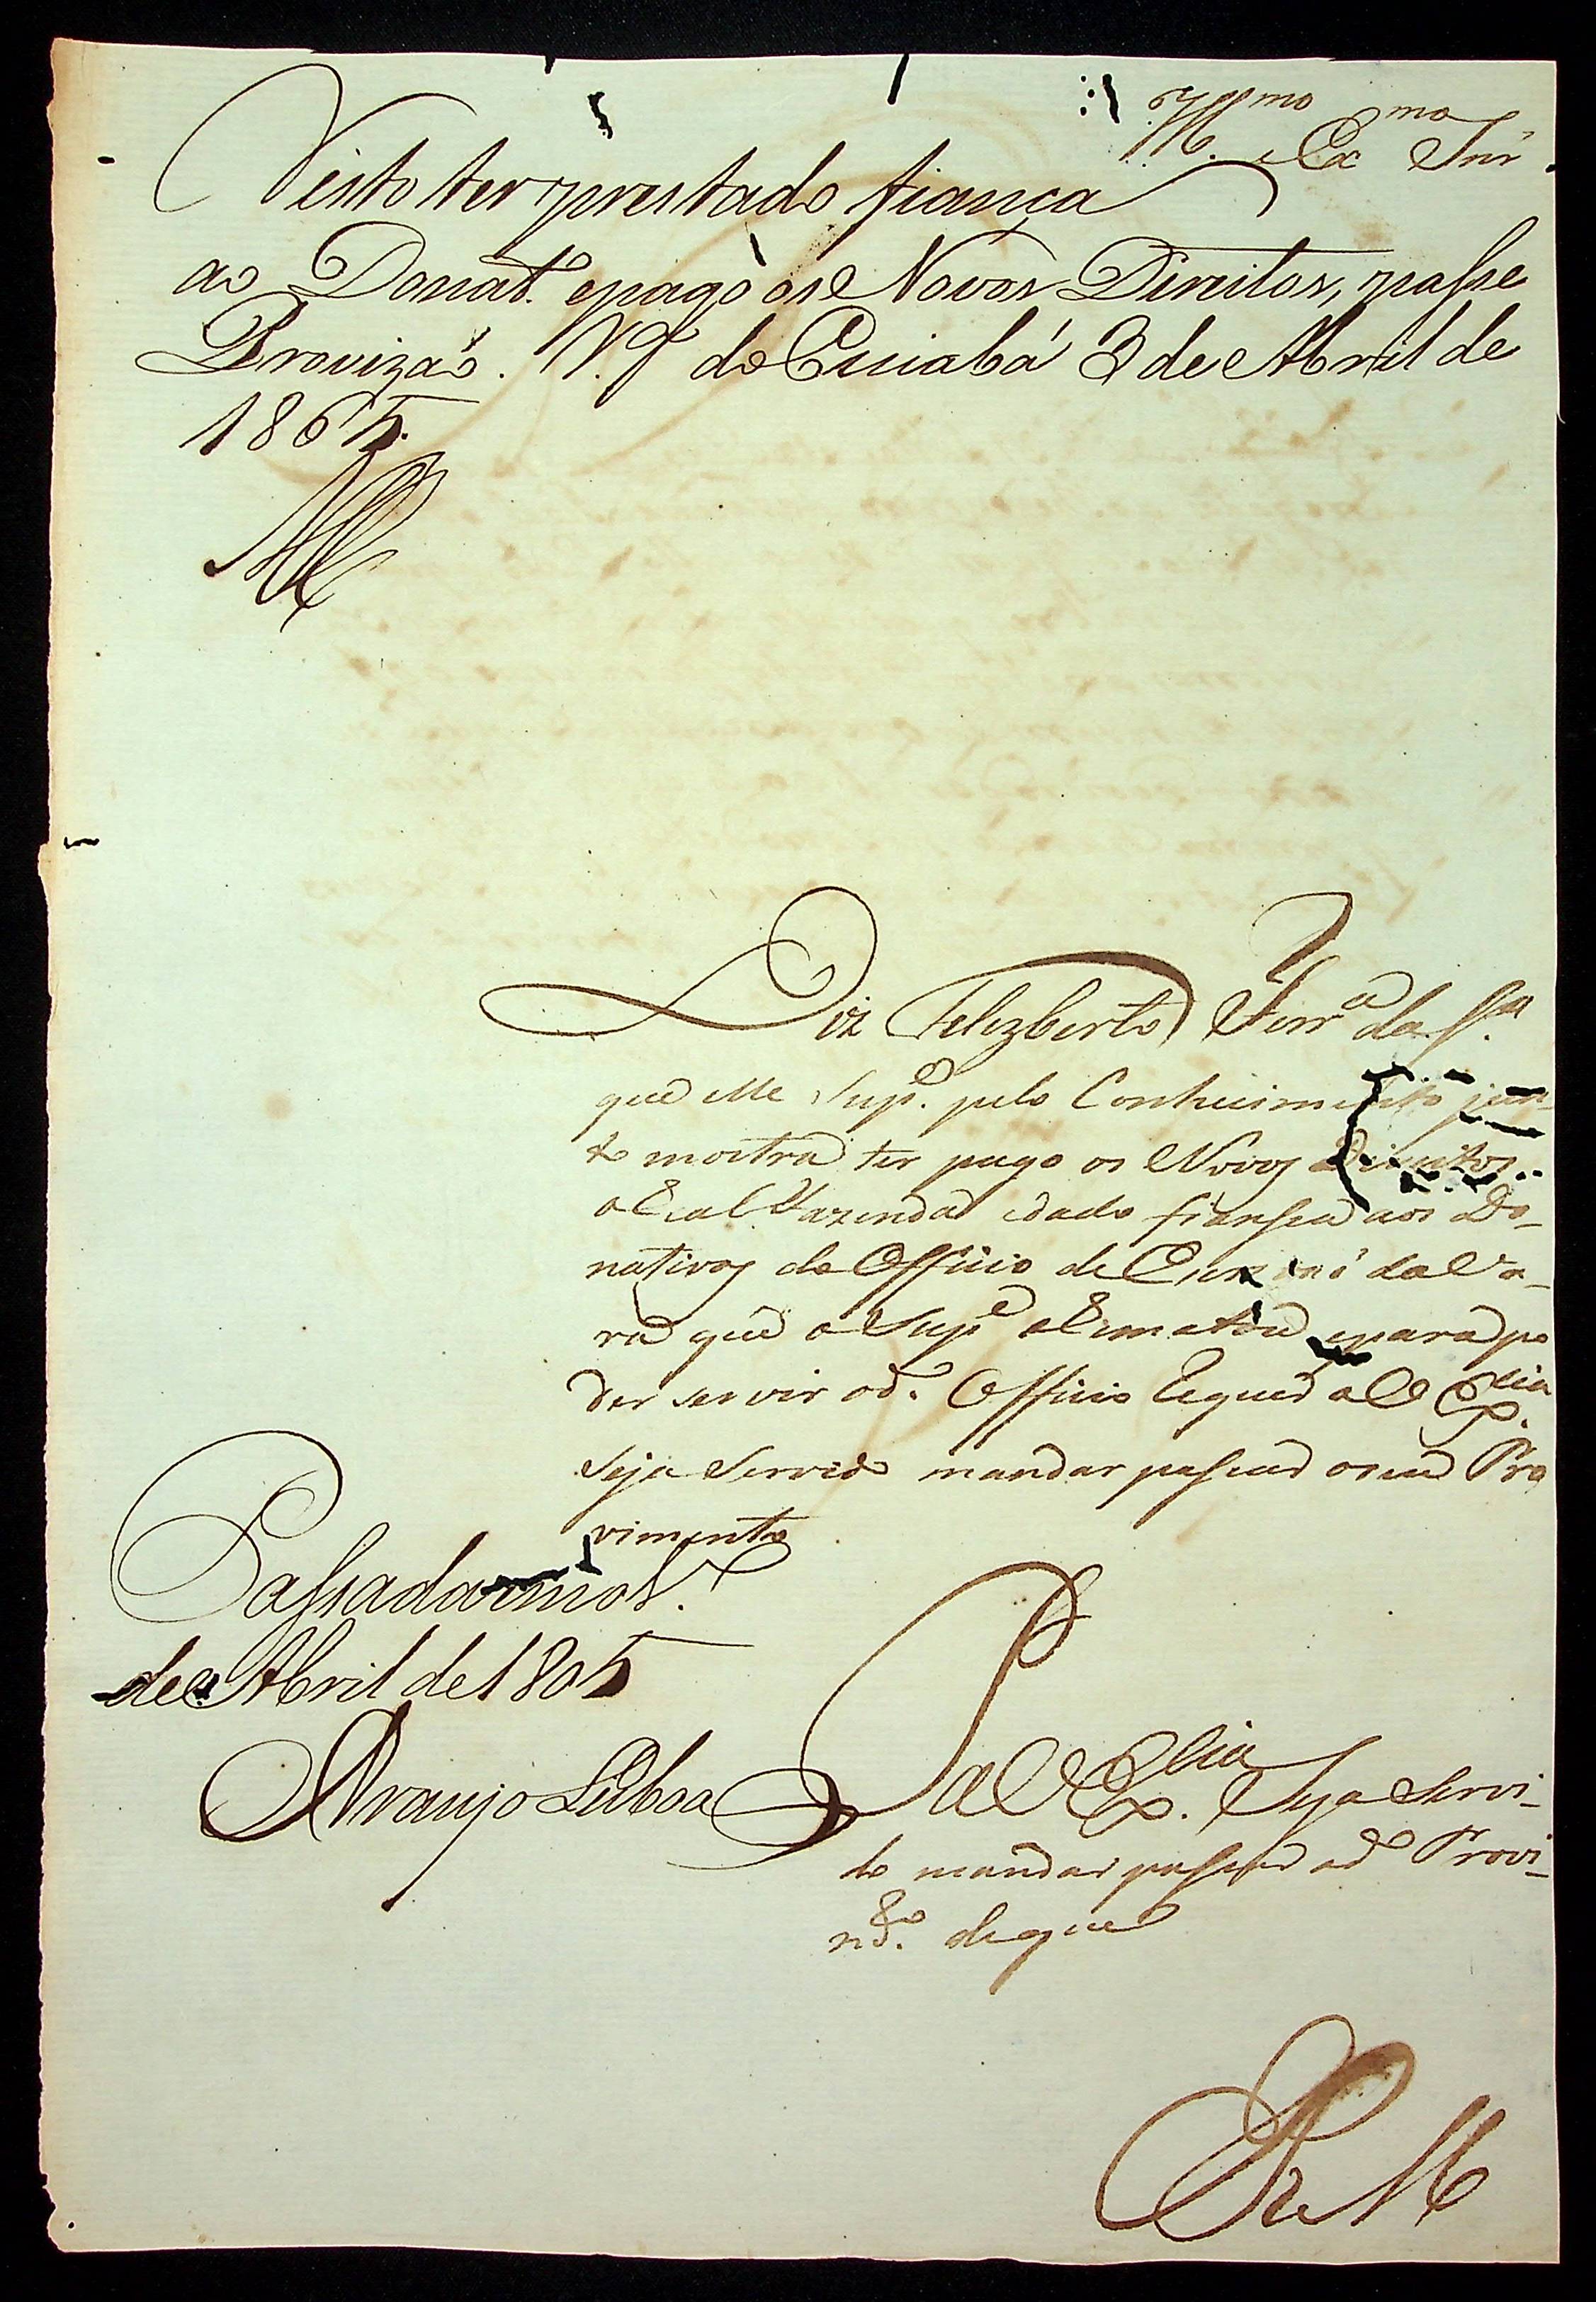 Ill.mo Ex mo Snr.
Visto ter prestado fiança
ao Donat.o epago os Novos Direitos, passe
Provizaõ. V.ª do Cuiabá 3 de Abril de
1805.
Diz Felizberto Ferr.a da S.a
que elle Sup.e pelo Conhecimento jun-
to mostra ter pago os Novos Direitos
a Real Fazenda edado fiansa aos Do-
nativos do Officio de da Va-
ra que o Sup.e aRematou epara po
der servir od.o Officio Requer a V Ex.cia
Seja Servido mandar passar oseu Pro
vimento
Passada
de Abril de 1805
Araujo Lisboa
P a V Ex.cia Seja Servi-
do mandar passar od.o Provi-
m.to deque
E R M